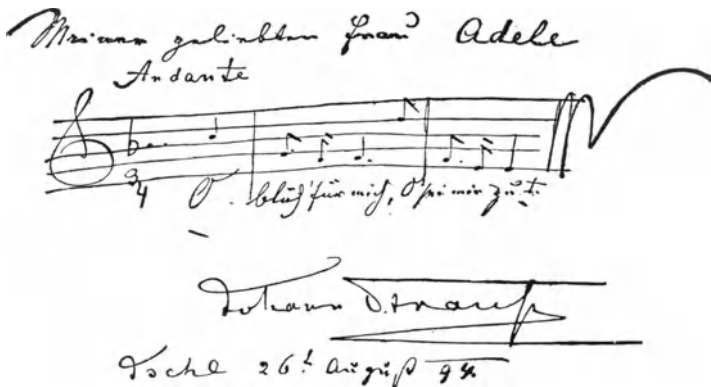 Meiner geliebten Frau Adele
Andante
3
4
O für mich, O sei mir gut.
Johann Strauß
Ischl 26t. August